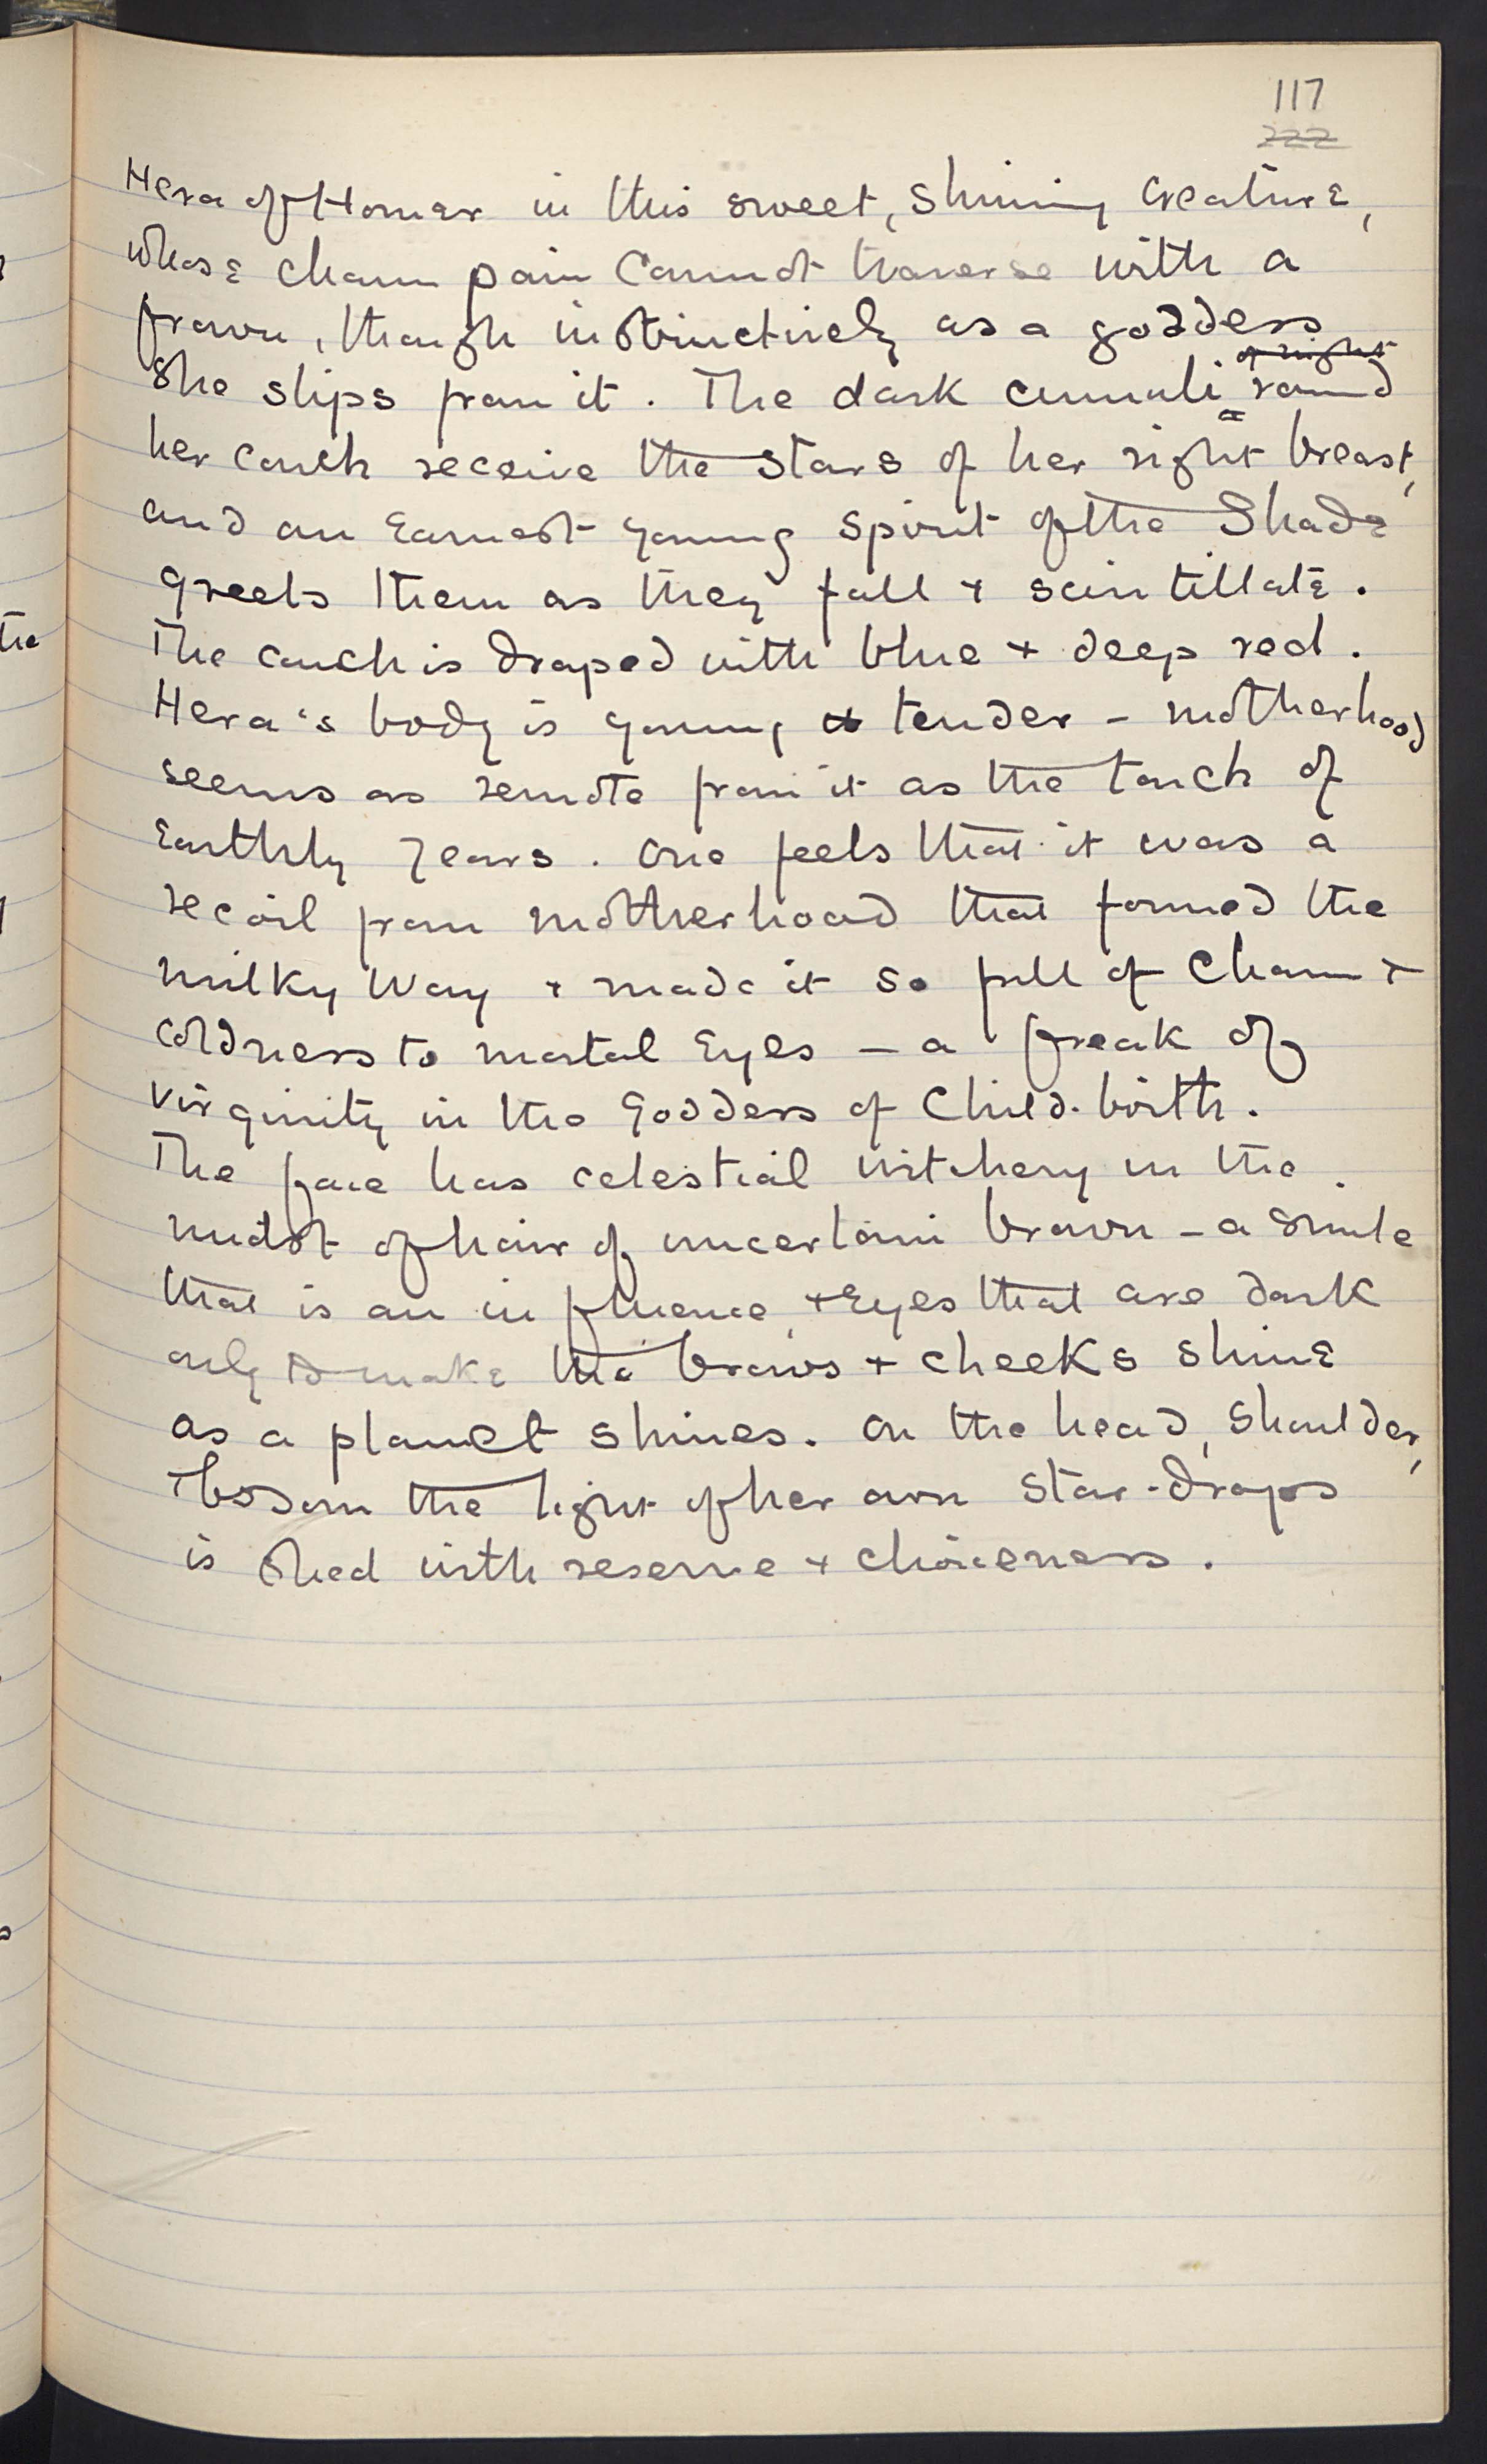 117
222
Hera of Homer in this sweet, shining creature,
whose charm pain cannot traverse with a
frown, though instinctively as a goddess
of night
she slips from it. The dark cumuli round
her couch receive the stars of her right breast,
and an earnest young spirit of the Shade
greets them as they fall & scintillate.
The couch is draped with blue & deep red.
Hera's body is young & tender - motherhood
seems as remote from it as the touch of
earthly years. One feels that it was a
recoil from motherhood that formed the
milky Way & made it so full of charm &
coldness to mortal eyes - a freak of
virginity in the Goddess of Child-birth.
The face has celestial witchery in the
midst of hair of uncertain brown - a smile
that is an influence, & eyes that are dark
only to make the brows & cheeks shine
as a planet shines. On the head, shoulder,
& bosom the light of her own star-drops
is shed with reserve & choiceness.
the